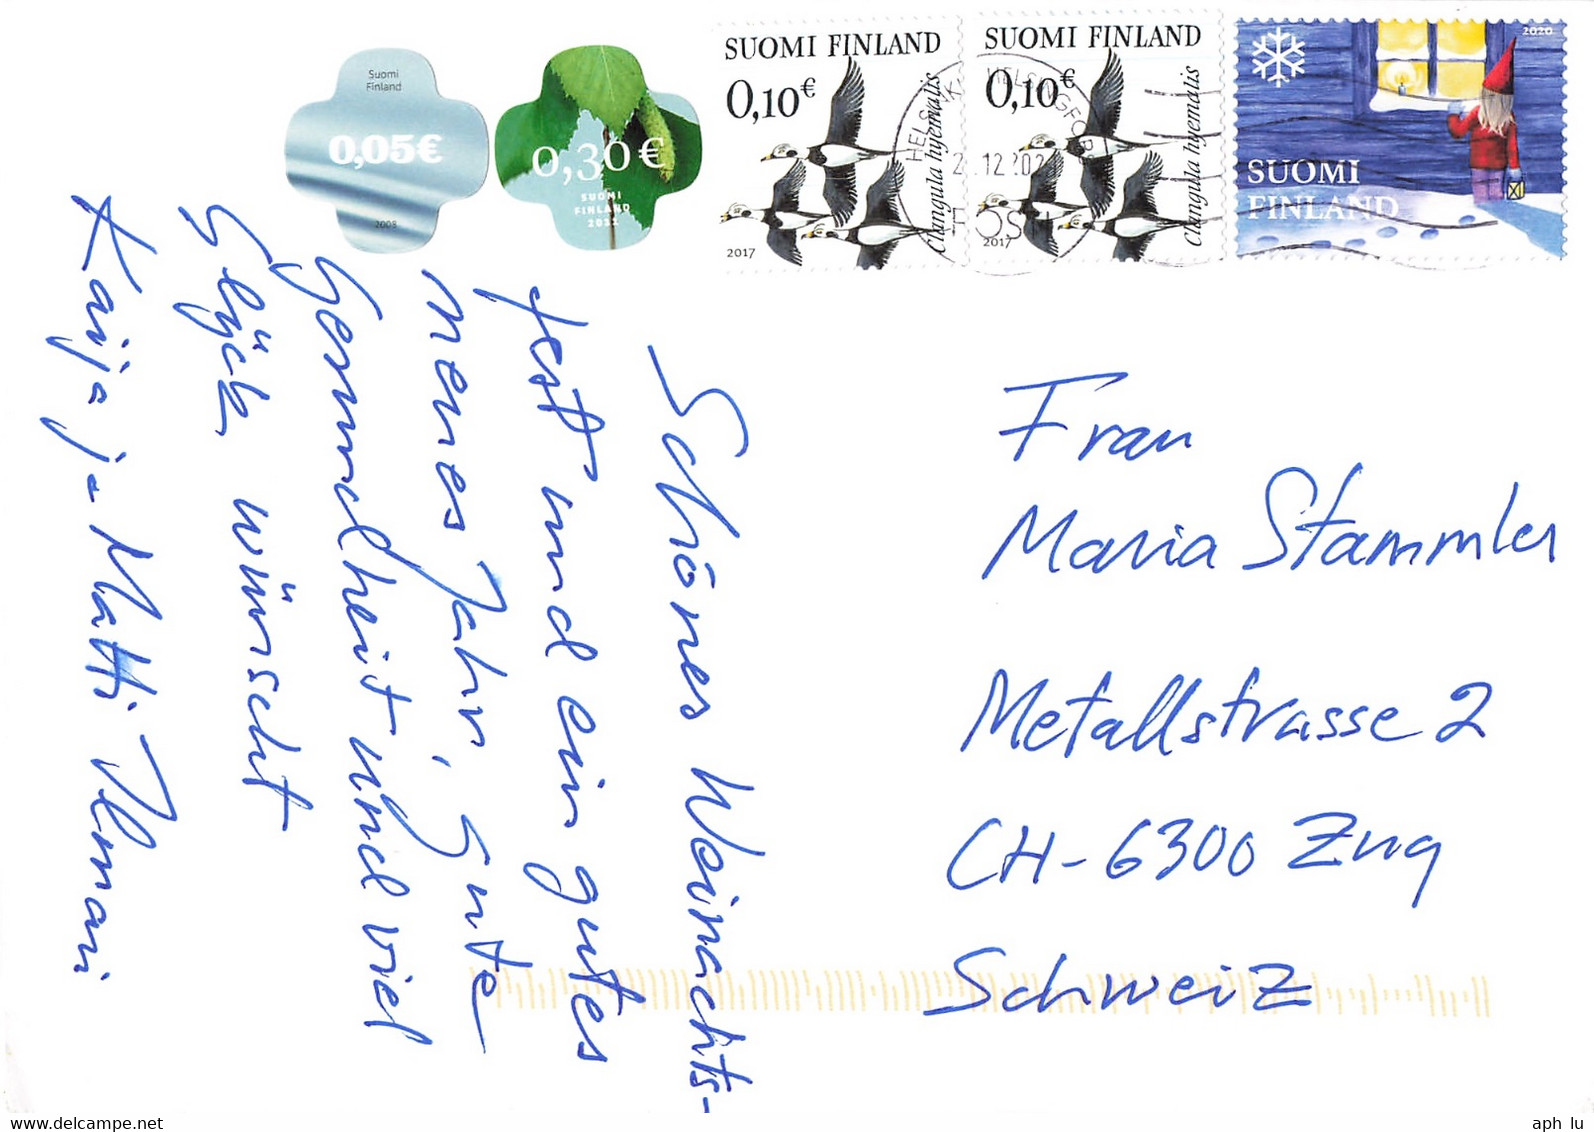 Suomi
Finland
0,05€
2008
0,30€
SUOMI
FINLAND
2022
SUOMI FINLAND
0,10€
Clangula hyemalis
2017
SUOMI FINLAND
0,10€
Clangula hyemalis
2017
2020
SUOMI
FINLAND
HELSINGFORS
Schönes Weinachts-
fest und ein gutes
neues Jahr, gute
Gesundheit und viel
Glück wünscht
Karija-Matti Ilmari
Frau
Maria Stammler
Metallstrasse 2
CH-6300 Zug
Schweiz
www.delcampe.net
aph_lu